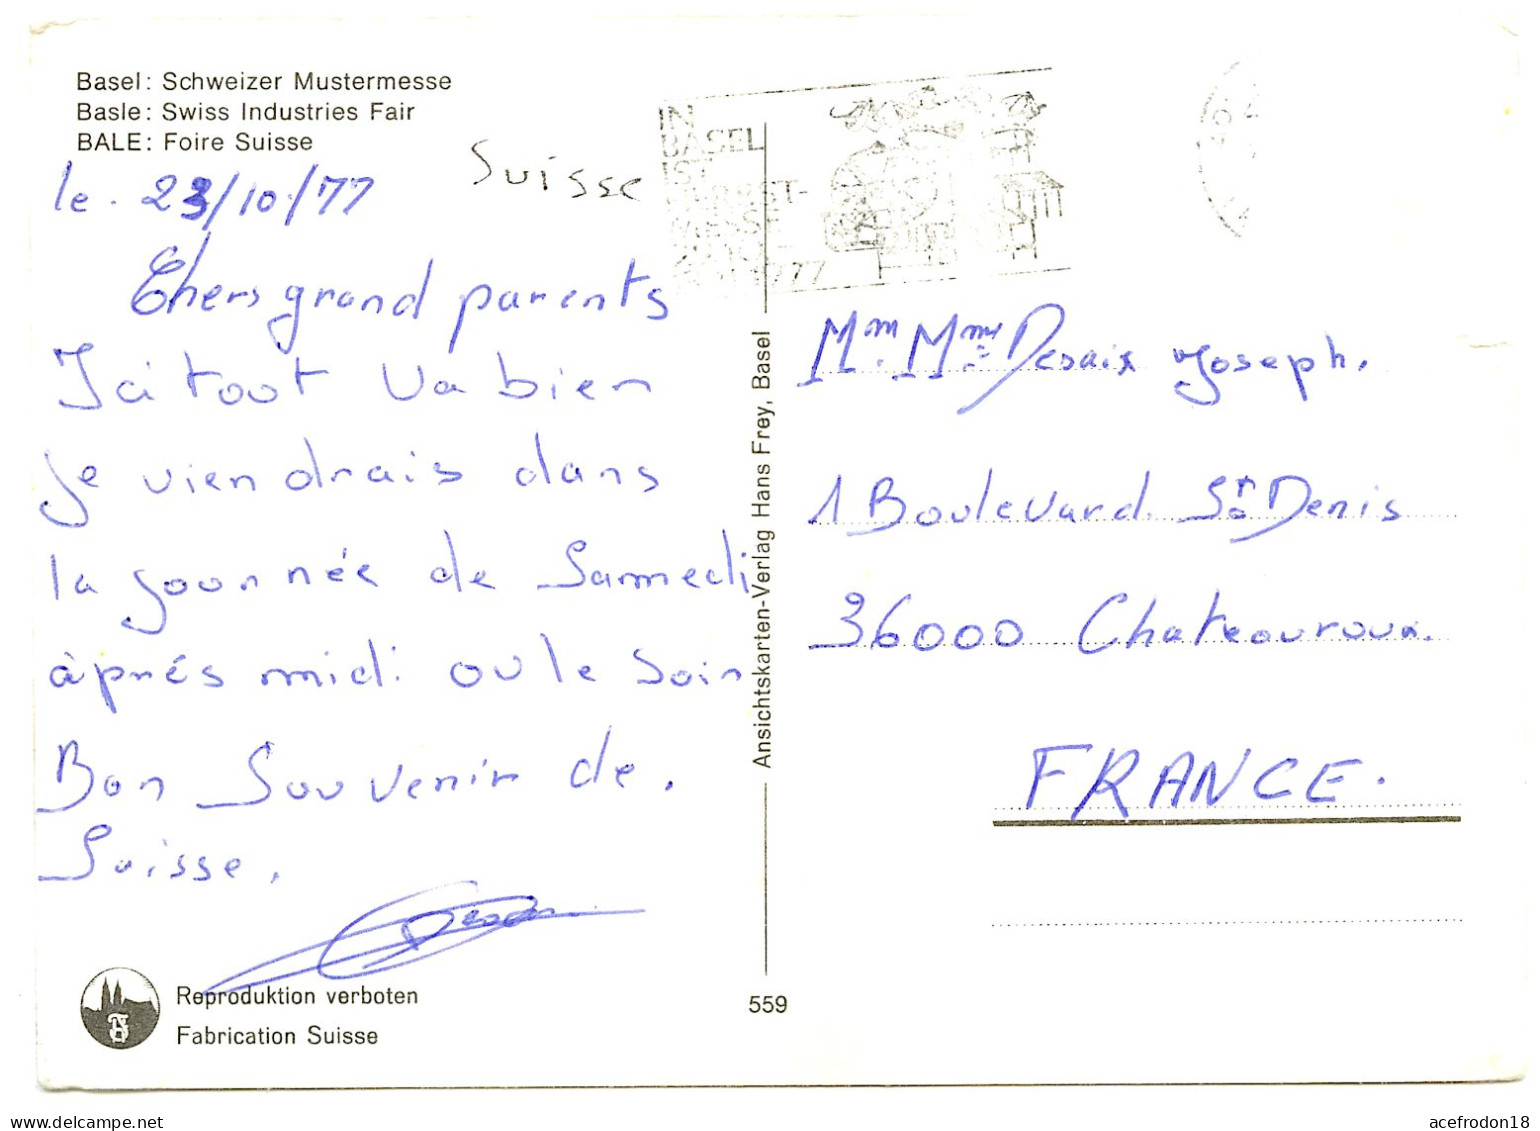 Basel: Schweizer Mustermesse
Basle: Swiss Industries Fair
BALE: Foire Suisse
Suisse
le. 23/10/77
Chers grand parents
Ici tout va bien
Je viendrais dans
la journée de Samedi
àprés midi ou le Soir
Bon Souvenir de.
Suisse.
Reproduktion verboten
Fabrication Suisse
Ansichtskarten-Verlag Hans Frey, Basel
559
IN
BASEL
IST
HERBST-
MESSE
1977
Mm. Mme Desaix Joseph.
1 Boulevard St Denis
36000 Chateauroux.
FRANCE.
acefrodon18